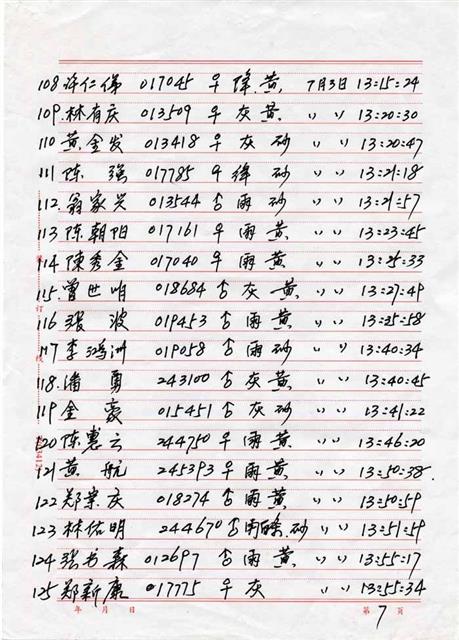 108 许仁俤 017045 ♀ 绛.黄. 7月3日 13:15:24
109.林有庆 013509 ♀ 灰 黄. 〃 〃 13:20:30
110 黄金发 013418 ♀ 灰 砂 〃 〃 13:20:47
111 陈 强 017785 ♀ 绛 砂 〃 〃 13:21:18
112.翁家兴 013544 ♂ 雨 砂. 〃 〃 13:21:57
113 陈朝阳 017161 ♀ 雨 黄. 〃 〃 13:23:45
114 陳秀金 017040 ♀ 雨 黄. 〃 〃 13:25:33
115.曾世明 018684 ♂ 灰 黄. 〃 〃 13:27:49
116 张 波 019453 ♂ 雨 黄 〃 〃 13:35:58
117 李鸿洲 019058 ♂ 雨 砂. 〃 〃 13:40:34
118.潘 勇 243100 ♂ 灰 黄 〃 〃 13:40:45
119 金 豪 015451 ♂ 灰 砂 〃 〃 13:41:22
120 陈惠云 244750 ♀ 雨 黄 〃 〃 13:46:20
121 黄 航 245393 ♀ 雨 黄. 〃 〃 13:50:38.
122 郑 庆 018274 ♂ 雨 黄 〃 〃 13:50:59
123 林佑明 244670 ♂ 雨 .砂 〃 〃 13:51:59
124 张书森 012697 ♂ 雨 黄 〃 〃 13:55:17
125 郑新康 017775 ♀ 灰 〃 〃 13:55:34
年 月 日 第 7 页